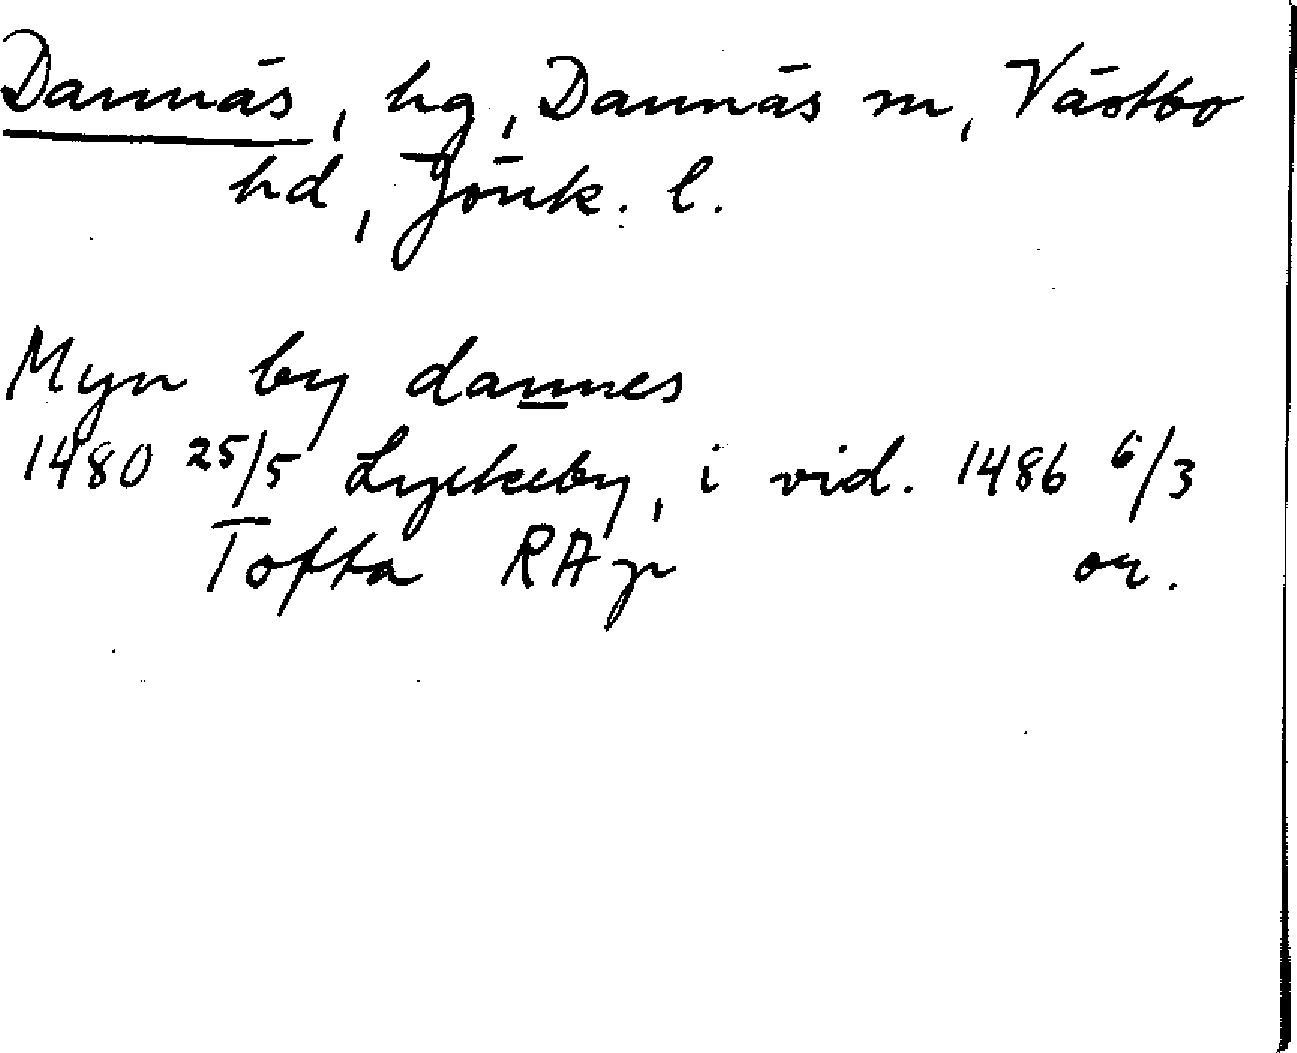 Dannäs, hg, Dannäs sn, Västbo
hd, Jönk. l.
Myn by dannes
1480 25/5 Lyckeby, i vid. 1486 6/3
Tofta RAp or.